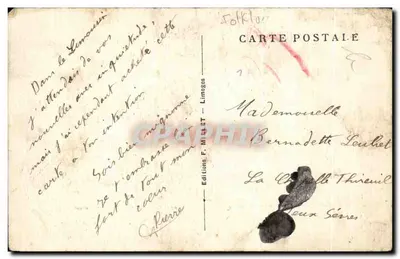 Folklore
CARTE POSTALE
Dans le Limousin
j'attendais de vos
nouvelles avec inquiétude,
mais j'ai cependant acheté cette
carte à ton intention
Sois bien mignonne
je t'embrasse
fort de tout mon
cœur
Pierre
Editions F. MILLET — Limoges
CPAPHIL
Mademoiselle
Bernadette
La Thireuil
Deux Sèvres